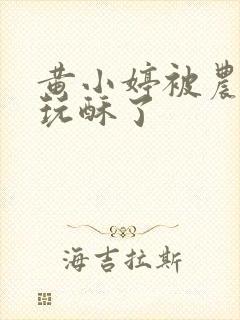 黄小婷被農
玩酥了
海吉拉斯